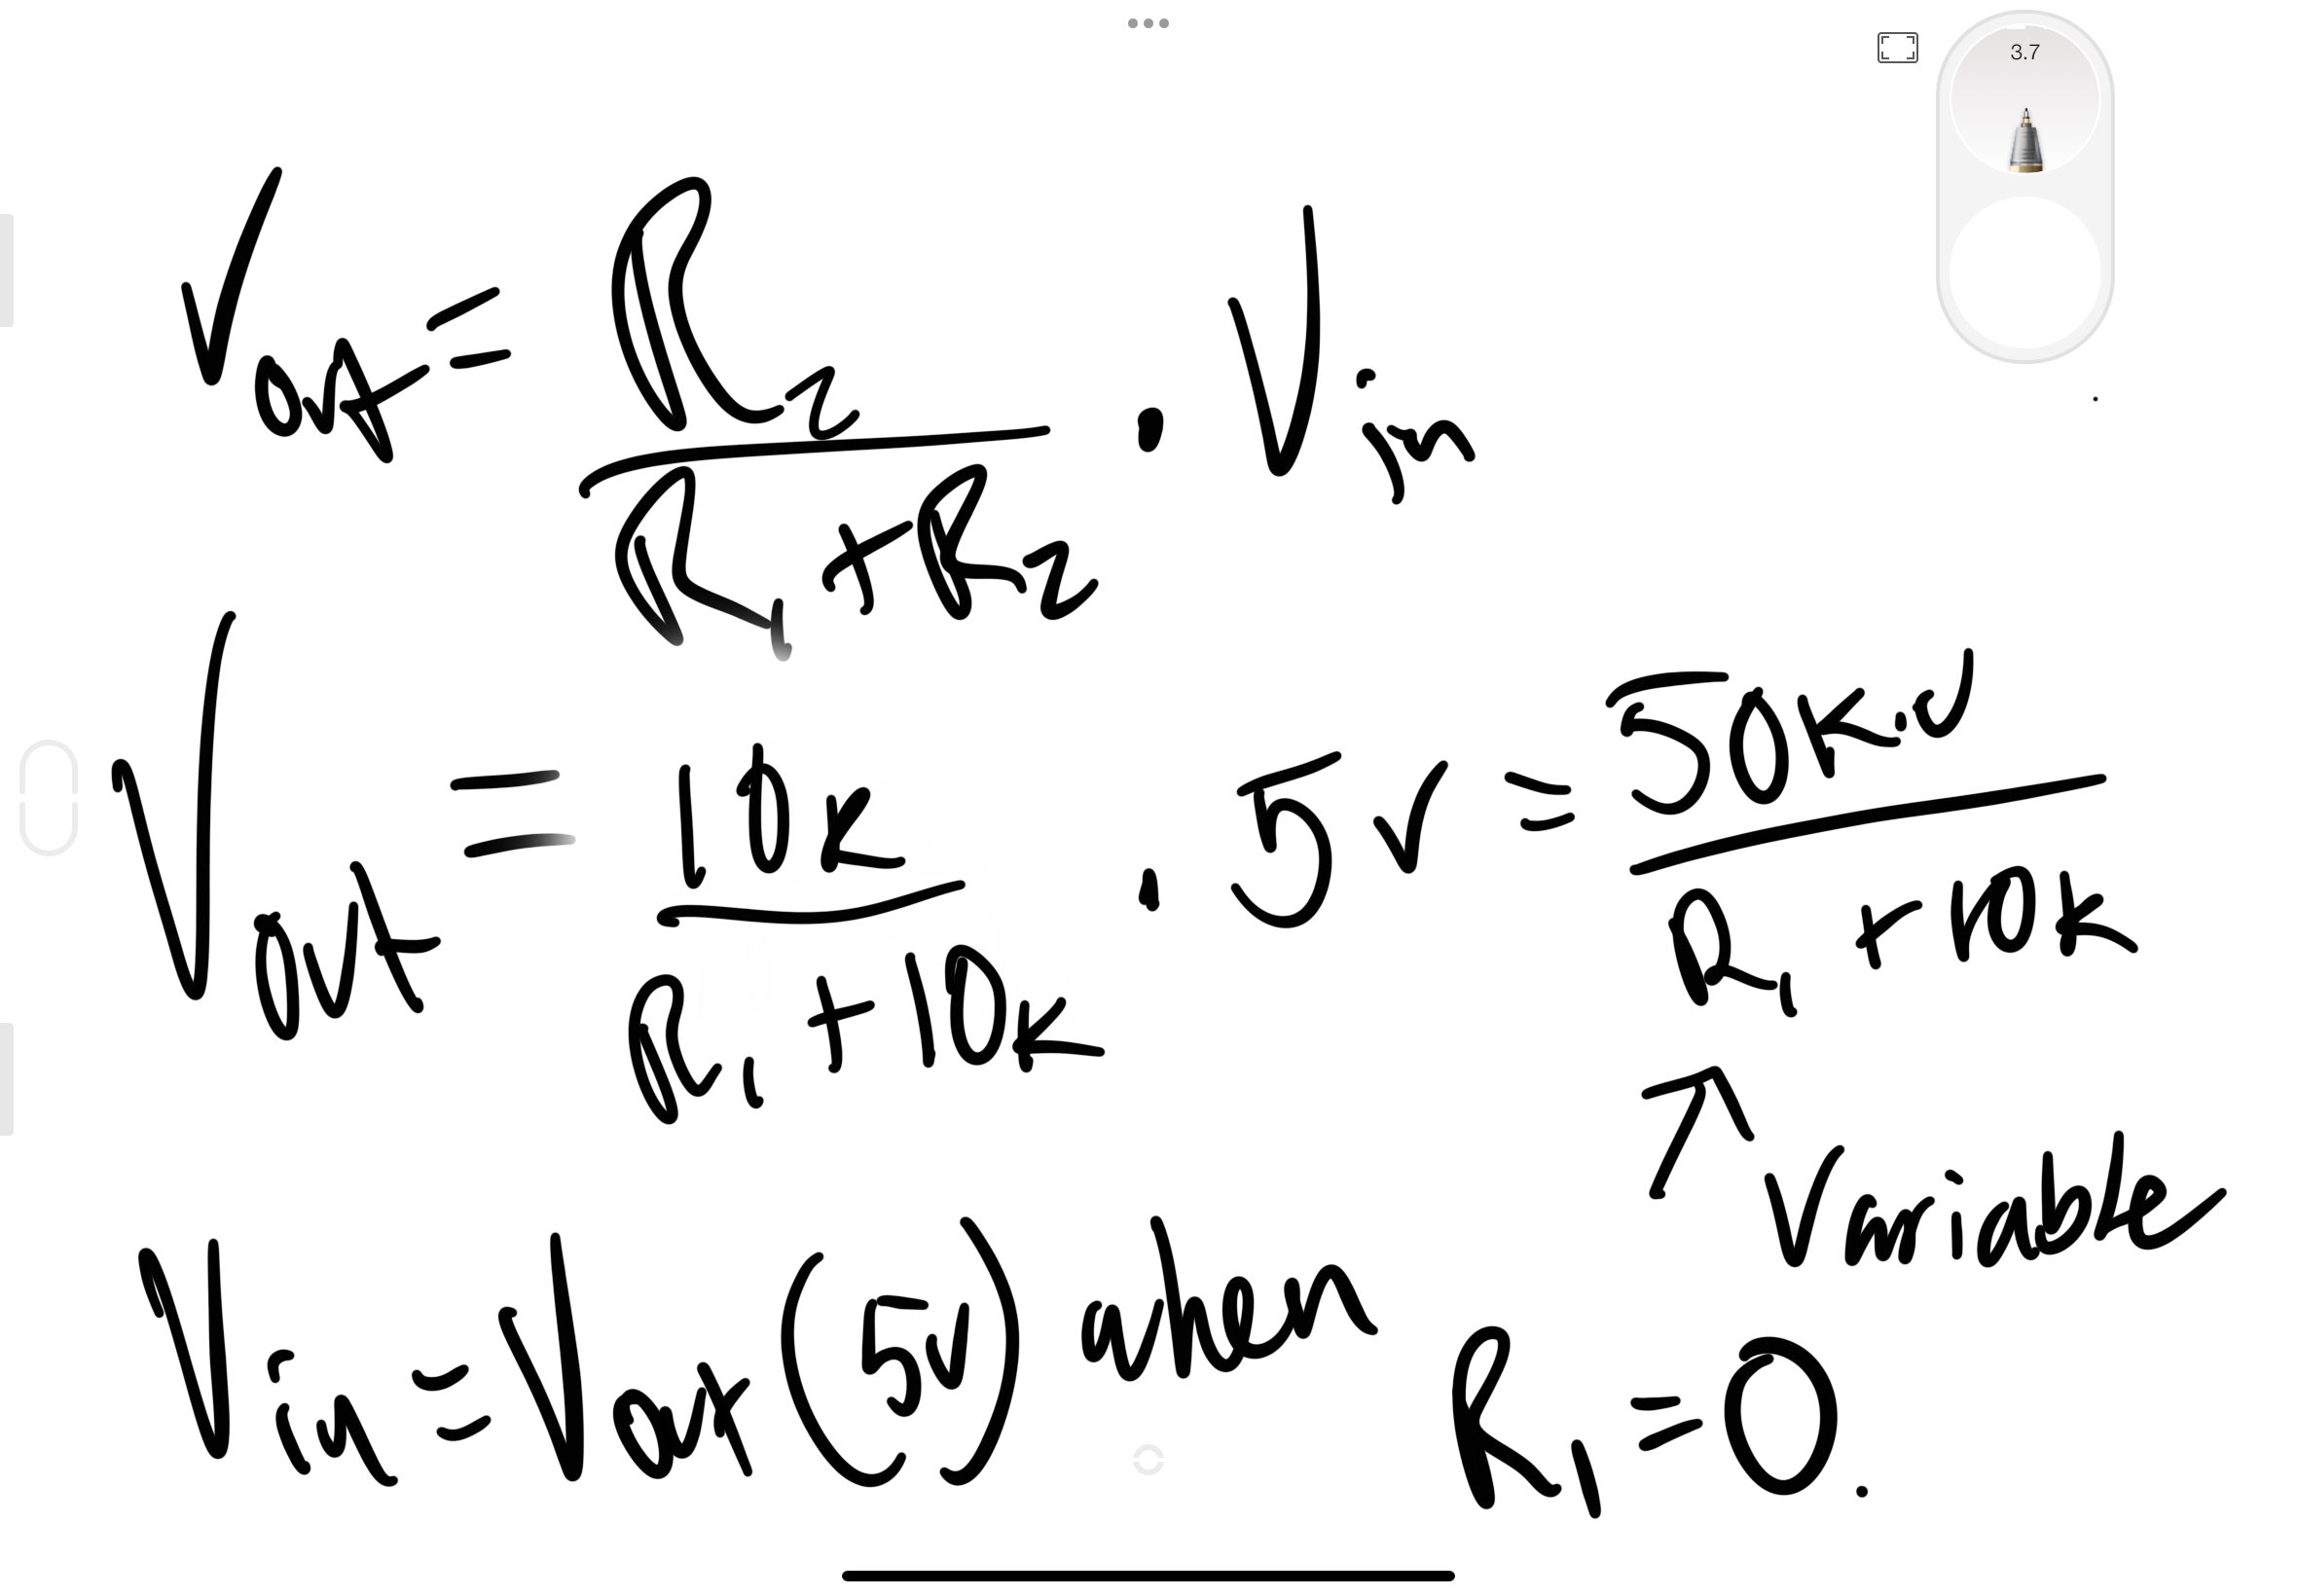 3.7
V_out = R_2 / (R_1 + R_2) . V_in
V_out = 10k / (R_1 + 10k) . 5V = 50k.V / (R_1 + 10k)
Variable
V_in = V_out (5V) when R_1 = 0.